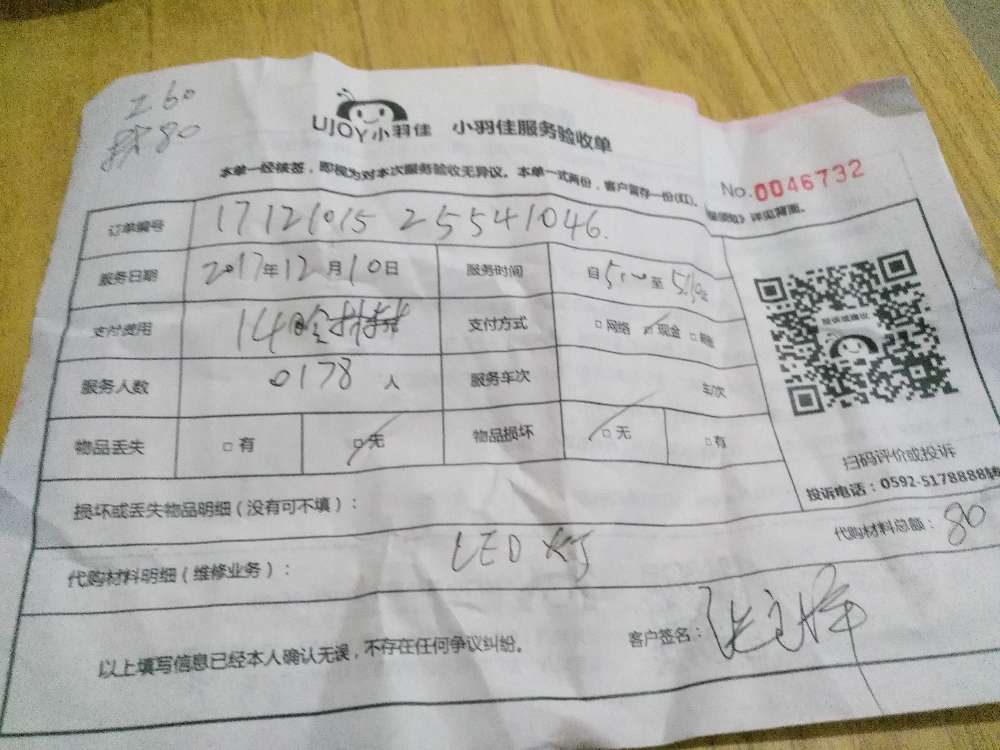 工60
80
UJOY小羽佳 小羽佳服务验收单
本单一经核签，即视为对本次服务验收无异议。本单一式两份，客户留存一份(红)。 须知》详见背面。
No.0046732
订单编号 17121015 25541046
服务日期 2017年12月10日 服务时间 自 至
支付费用 140 支付方式 □网络 □现金 □
服务人数 0178 人 服务车次 车次
物品丢失 □有 □无 物品损坏 □无 □有
扫码评价或投诉
投诉电话：0592-5178888转
损坏或丢失物品明细（没有可不填）：
代购材料明细（维修业务）： LED灯 代购材料总额：80
以上填写信息已经本人确认无误，不存在任何争议纠纷。 客户签名：